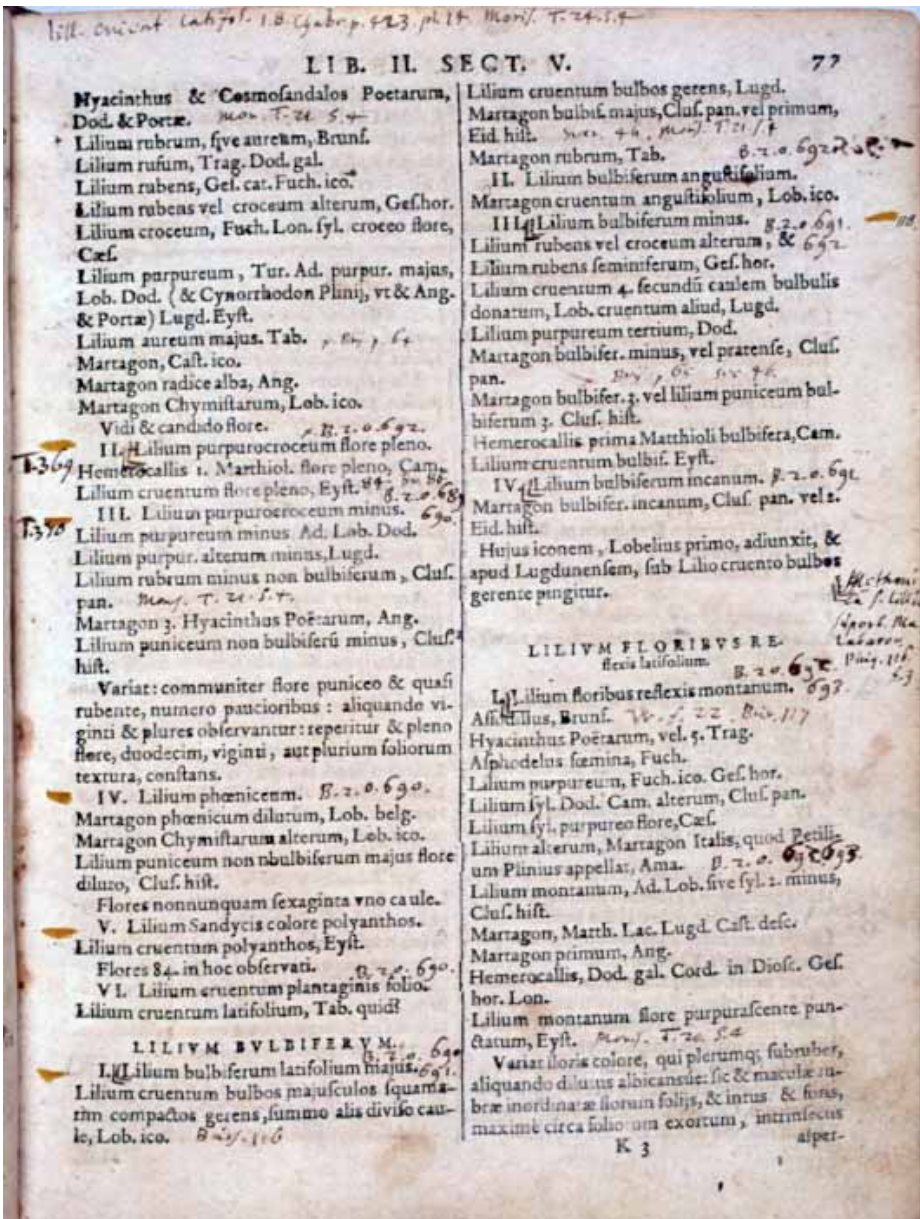 LIB. II. SECT. V. 77
Hyacinthus & Cosmosandalos Poetarum,
Dod. & Portæ. Mor. T. 21 S. 4
Lilium rubrum, sive aureum, Brunf.
Lilium rufum, Trag. Dod. gal.
Lilium rubens, Gef. cat. Fuch. ico.
Lilium rubens vel croceum alterum, Gef. hor.
Lilium croceum, Fuch. Lon. syl. croceo flore,
Cæs.
Lilium purpureum, Tur. Ad. purpur. majus,
Lob. Dod. (& Cynorrhodon Plinij, vt & Ang.
& Portæ) Lugd. Eyst.
Lilium aureum majus. Tab.
Martagon, Cast. ico.
Martagon radice alba, Ang.
Martagon Chymistarum, Lob. ico.
Vidi & candido flore. B. 2. 0. 692.
II. Lilium purpurocroceum flore pleno.
T. 369 Hemerocallis 1. Matthiol. flore pleno, Cam.
Lilium cruentum flore pleno, Eyst.
III. Lilium purpurocroceum minus. 690.
T. 370 Lilium purpureum minus Ad. Lob. Dod.
Lilium purpur. alterum minus, Lugd.
Lilium rubrum minus non bulbiferum, Cluf.
pan. Mor. T. 21. S. 4.
Martagon 3. Hyacinthus Poëtarum, Ang.
Lilium puniceum non bulbiferū minus, Cluf.
hist.
Variat: communiter flore puniceo & quasi
rubente, numero paucioribus: aliquando vi-
ginti & plures observantur: reperitur & pleno
flore, duodecim, viginti, aut plurium foliorum
textura, constans.
IV. Lilium phœniceum. B. 2. 0. 690.
Martagon phœnicum dilutum, Lob. belg.
Martagon Chymistarum alterum, Lob. ico.
Lilium puniceum non nbulbiferum majus flore
diluto, Cluf. hist.
Flores nonnunquam sexaginta vno caule.
V. Lilium Sandycis colore polyanthos.
Lilium cruentum polyanthos, Eyst.
Flores 84. in hoc observati. B. 2. 0. 690.
VI. Lilium cruentum plantaginis folio.
Lilium cruentum latifolium, Tab. quid?
LILIVM BVLBIFERVM.
B. 2. 0. 690
I. Lilium bulbiferum latifolium majus. 691.
Lilium cruentum bulbos majusculos squama-
tim compactos gerens, summo alis diviso cau-
le, Lob. ico.
Lilium cruentum bulbos gerens, Lugd.
Martagon bulbif. majus, Cluf. pan. vel primum,
Eid. hist.
Martagon rubrum, Tab. B. 2. 0. 692
II. Lilium bulbiferum angustifolium.
Martagon cruentum angustifolium, Lob. ico.
III. Lilium bulbiferum minus. B. 2. 0. 691.
Lilium rubens vel croceum alterum, & 692
Lilium rubens seminiferum, Gef. hor.
Lilium cruentum 4. secundū caulem bulbulis
donatum, Lob. cruentum aliud, Lugd.
Lilium purpureum tertium, Dod.
Martagon bulbifer. minus, vel pratense, Cluf.
pan.
Martagon bulbifer. 3. vel lilium puniceum bul-
biferum 3. Cluf. hist.
Hemerocallis prima Matthioli bulbifera, Cam.
Lilium cruentum bulbif. Eyst.
IV. Lilium bulbiferum incanum. B. 2. 0. 692
Martagon bulbifer. incanum, Cluf. pan. vel 2.
Eid. hist.
Hujus iconem, Lobelius primo, adiunxit, &
apud Lugdunensem, sub Lilio cruento bulbos
gerente pingitur.
LILIVM FLORIBVS RE-
flexis latifolium.
I. Lilium floribus reflexis montanum. 693.
Affodillus, Brunf.
Hyacinthus Poëtarum, vel 5. Trag.
Asphodelus fœmina, Fuch.
Lilium purpureum, Fuch. ico. Gef. hor.
Lilium syl. Dod. Cam. alterum, Cluf. pan.
Lilium syl. purpureo flore, Cæs.
Lilium alterum, Martagon Italis, quod Petili-
um Plinius appellat, Ama. B. 2. 0. 693.
Lilium montanum, Ad. Lob. sive syl. 2. minus,
Cluf. hist.
Martagon, Matth. Lac. Lugd. Cast. desc.
Martagon primum, Ang.
Hemerocallis, Dod. gal. Cord. in Diosc. Gef.
hor. Lon.
Lilium montanum flore purpurascente pun-
ctatum, Eyst.
Variat floris colore, qui plerumq; subruber,
aliquando dilutus albicansue: sic & maculæ ru-
bræ inordinatæ florum folijs, & intus & foris,
maximè circa foliorum exortum, intrinsecus
K 3 asper-